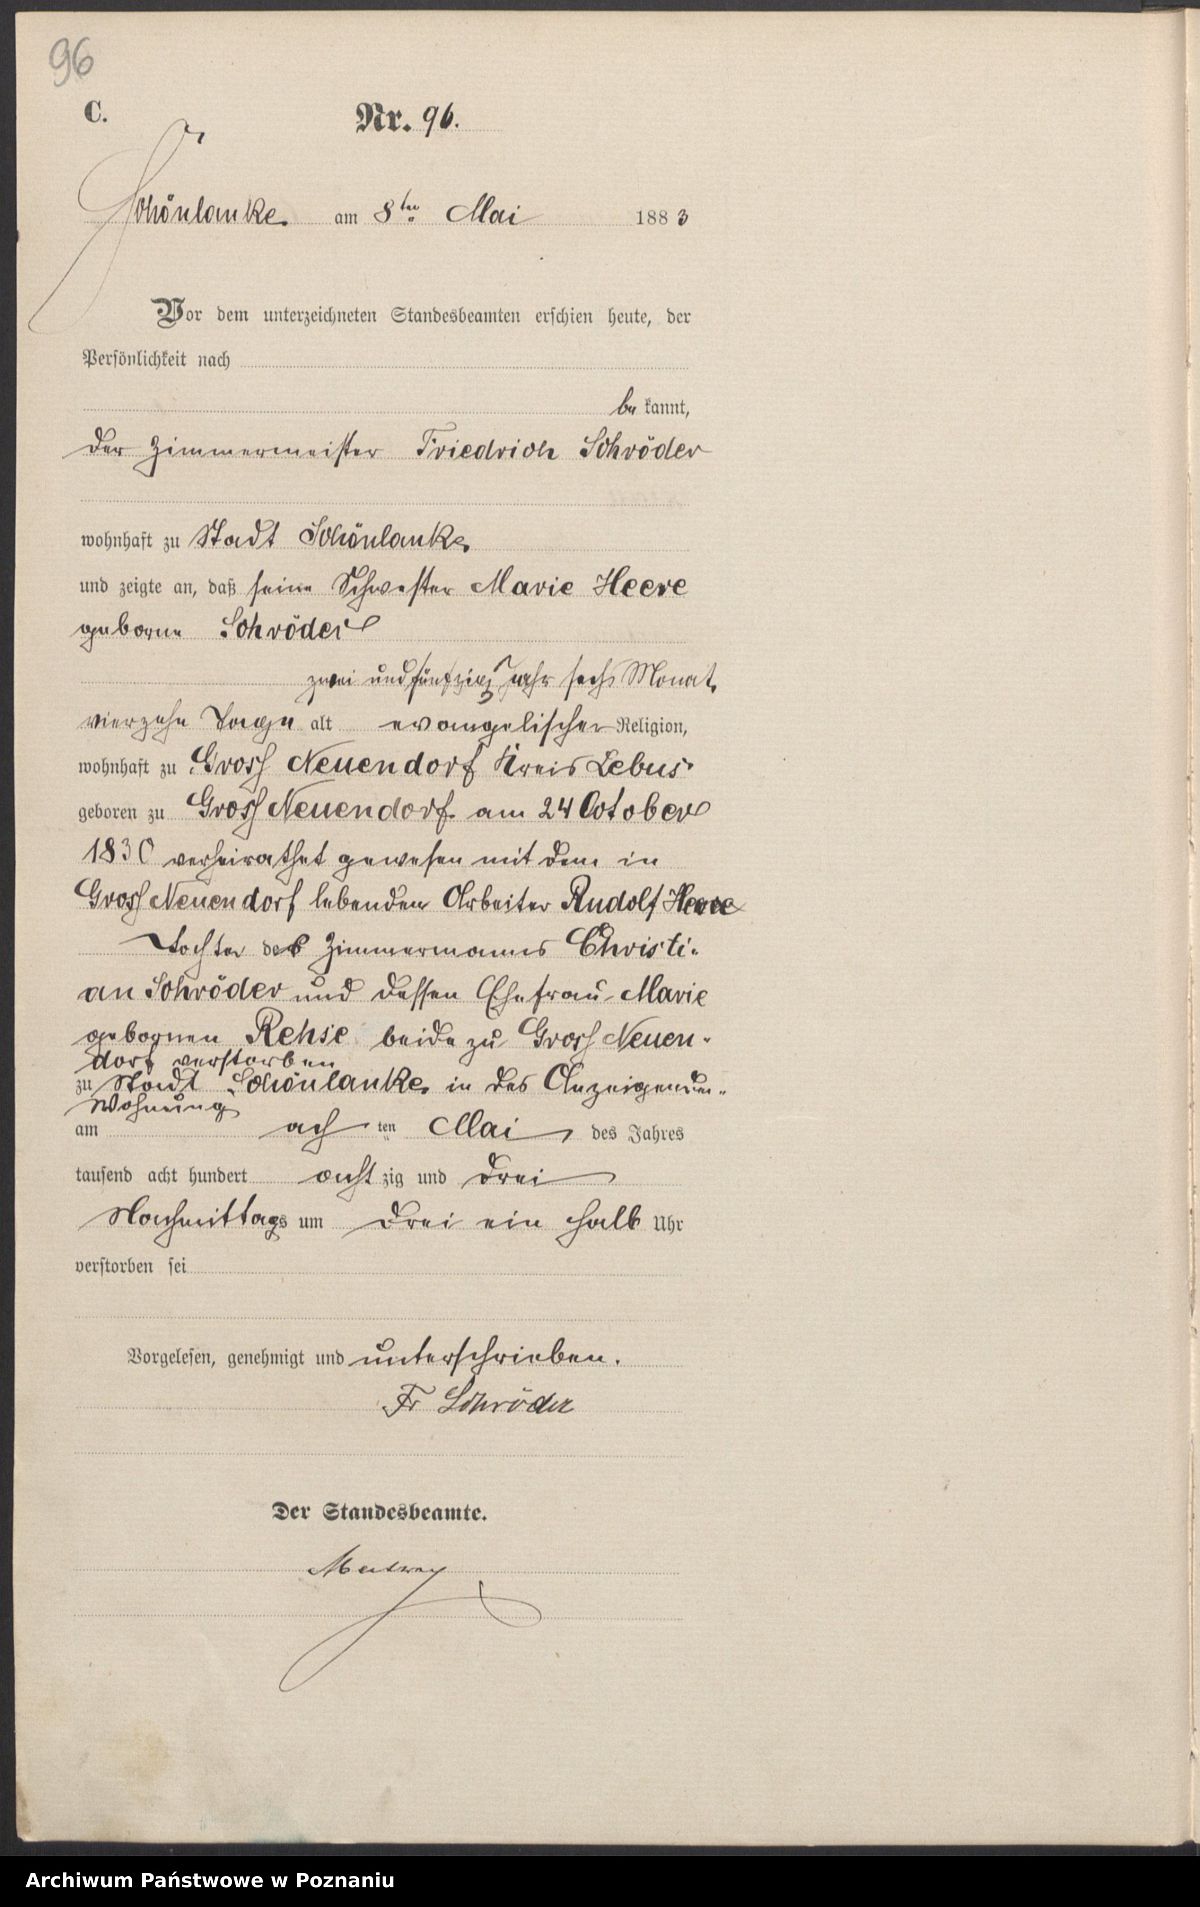 96
C. Nr. 96.
Schönlanke am 8ten Mai 1883
Vor dem unterzeichneten Standesbeamten erschien heute, der
Persönlichkeit nach
bekannt,
der Zimmermeister Friedrich Schröder
wohnhaft zu Stadt Schönlanke
und zeigte an, daß seine Schwester Marie Heere
geborne Schröder
zwei und fünfzig Jahr sechs Monat
vierzehn Tage alt evangelischer Religion,
wohnhaft zu Gross Neuendorf Kreis Lebus
geboren zu Gross Neuendorf am 24 October
1830 verheirathet gewesen mit dem in
Gross Neuendorf lebenden Arbeiter Rudolf Heere
Tochter des Zimmermanns Christi-
an Schröder und dessen Ehefrau Marie
gebornen Rehse beide zu Gross Neuen-
dorf verstorben
zu Stadt Schönlanke in des Anzeigenden
Wohnung
am achten Mai des Jahres
tausend acht hundert achtzig und drei
Nachmittags um drei ein halb Uhr
verstorben sei
Vorgelesen, genehmigt und unterschrieben.
Fr Schröder
Der Standesbeamte.
Archiwum Państwowe w Poznaniu